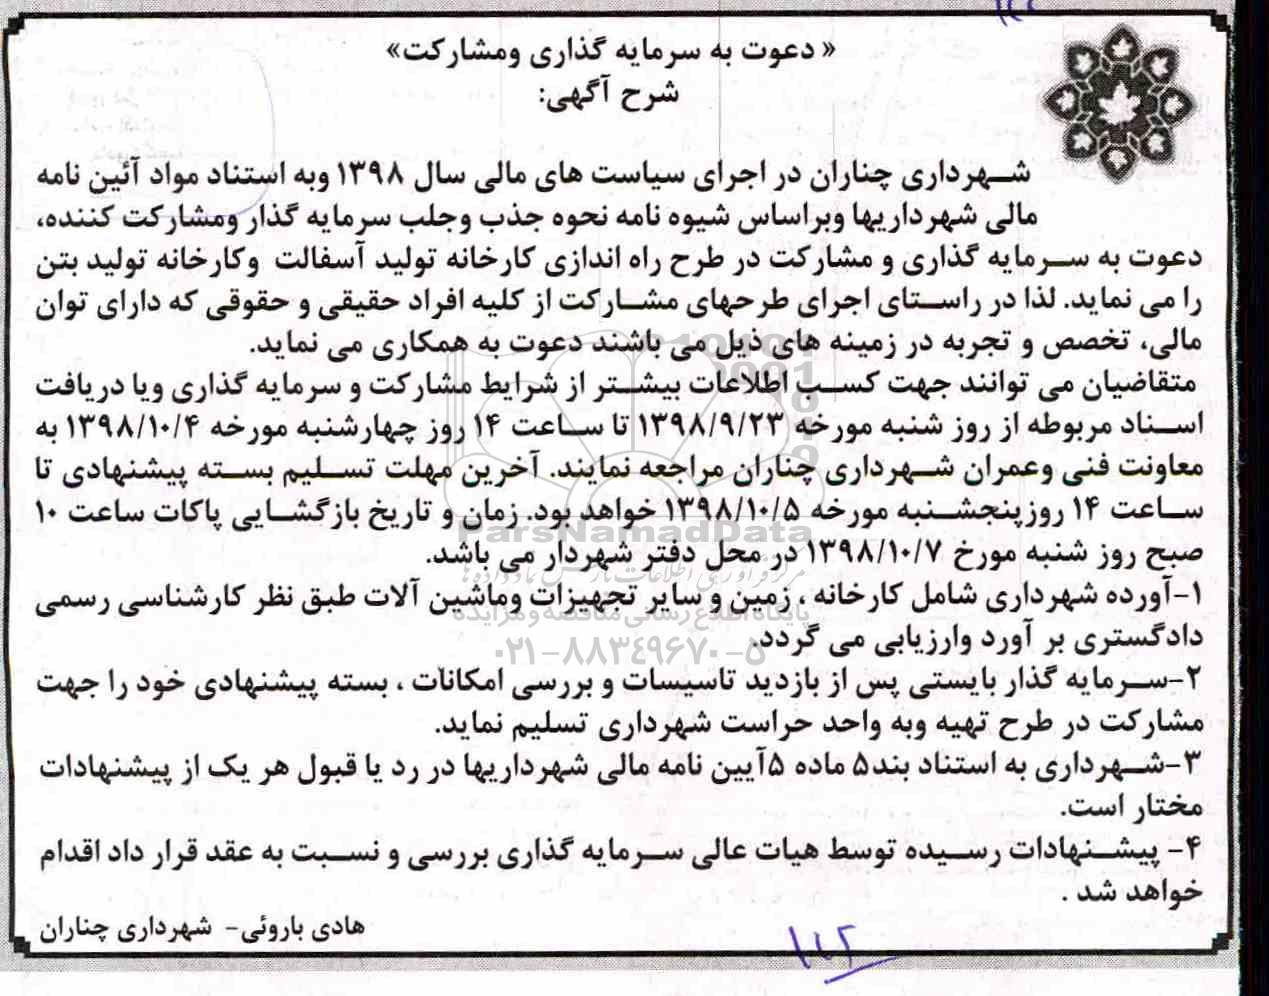 « دعوت به سرمایه گذاری ومشارکت»
شرح آگهی:
شهرداری چناران در اجرای سیاست های مالی سال ۱۳۹۸ وبه استناد مواد آئین نامه
مالی شهرداریها وبراساس شیوه نامه نحوه جذب وجلب سرمایه گذار ومشارکت کننده،
دعوت به سرمایه گذاری و مشارکت در طرح راه اندازی کارخانه تولید آسفالت وکارخانه تولید بتن
را می نماید. لذا در راستای اجرای طرحهای مشارکت از کلیه افراد حقیقی و حقوقی که دارای توان
مالی، تخصص و تجربه در زمینه های ذیل می باشند دعوت به همکاری می نماید.
متقاضیان می توانند جهت کسب اطلاعات بیشتر از شرایط مشارکت و سرمایه گذاری ویا دریافت
اسناد مربوطه از روز شنبه مورخه ۱۳۹۸/۹/۲۳ تا ساعت ۱۴ روز چهارشنبه مورخه ۱۳۹۸/۱۰/۴ به
معاونت فنی وعمران شهرداری چناران مراجعه نمایند. آخرین مهلت تسلیم بسته پیشنهادی تا
ساعت ۱۴ روزپنجشنبه مورخه ۱۳۹۸/۱۰/۵ خواهد بود. زمان و تاریخ بازگشایی پاکات ساعت ۱۰
صبح روز شنبه مورخ ۱۳۹۸/۱۰/۷ در محل دفتر شهردار می باشد.
۱-آورده شهرداری شامل کارخانه ، زمین و سایر تجهیزات وماشین آلات طبق نظر کارشناسی رسمی
دادگستری بر آورد وارزیابی می گردد.
۲-سرمایه گذار بایستی پس از بازدید تاسیسات و بررسی امکانات ، بسته پیشنهادی خود را جهت
مشارکت در طرح تهیه وبه واحد حراست شهرداری تسلیم نماید.
۳-شهرداری به استناد بند۵ ماده ۵آیین نامه مالی شهرداریها در رد یا قبول هر یک از پیشنهادات
مختار است.
۴- پیشنهادات رسیده توسط هیات عالی سرمایه گذاری بررسی و نسبت به عقد قرار داد اقدام
خواهد شد .
هادی باروئی- شهرداری چناران
ParsNamadData
پایگاه اطلاع رسانی مناقصه و مزایده
۰۲۱-۸۸۳٤۹۶۷۰-۵